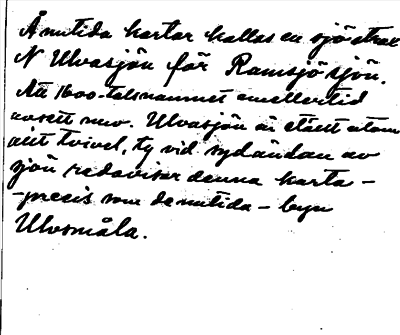 Å nutida kartor kallas en sjö strax
N Ulvasjön för Ramsjösjön.
Att 1600-talsnamnet emellertid
avsett nuv. Ulvasjön är ställt utom
allt tvivel, ty vid sydändan av
sjön redovisar denna karta –
– precis som de nutida – byn
Ulvsmåla.